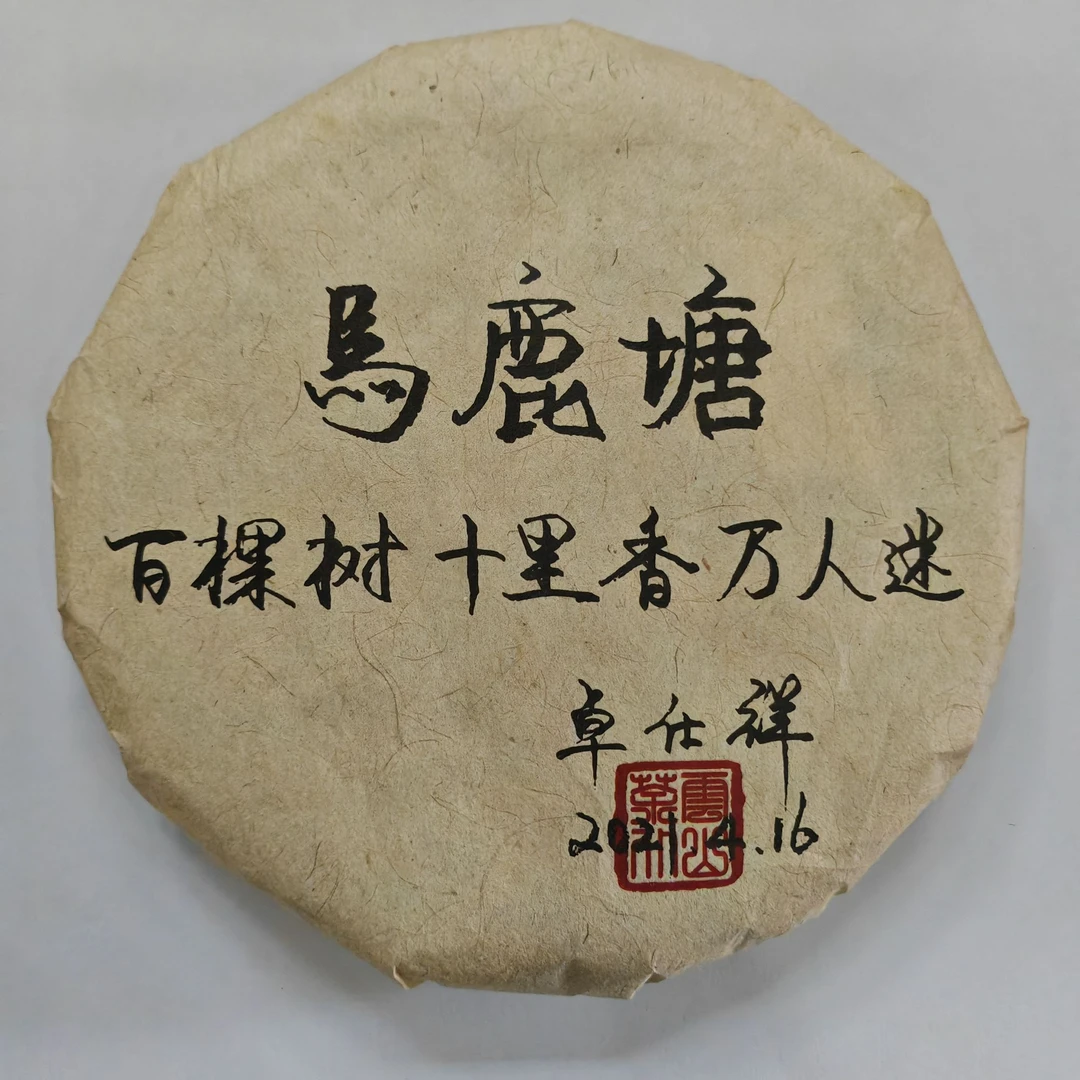 馬鹿塘
百棵树 十里香 万人迷
卓仕祥
2021.4.16